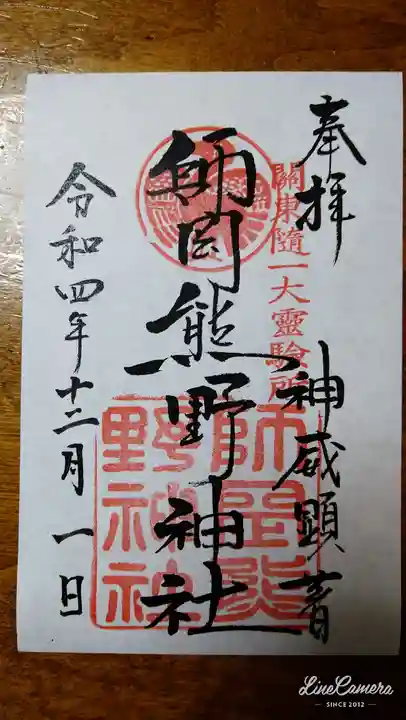 奉拝
關東隨一大靈驗所
神威顕著
師岡熊野神社
師岡熊野神社
令和四年十二月一日
LineCamera
SINCE 2012